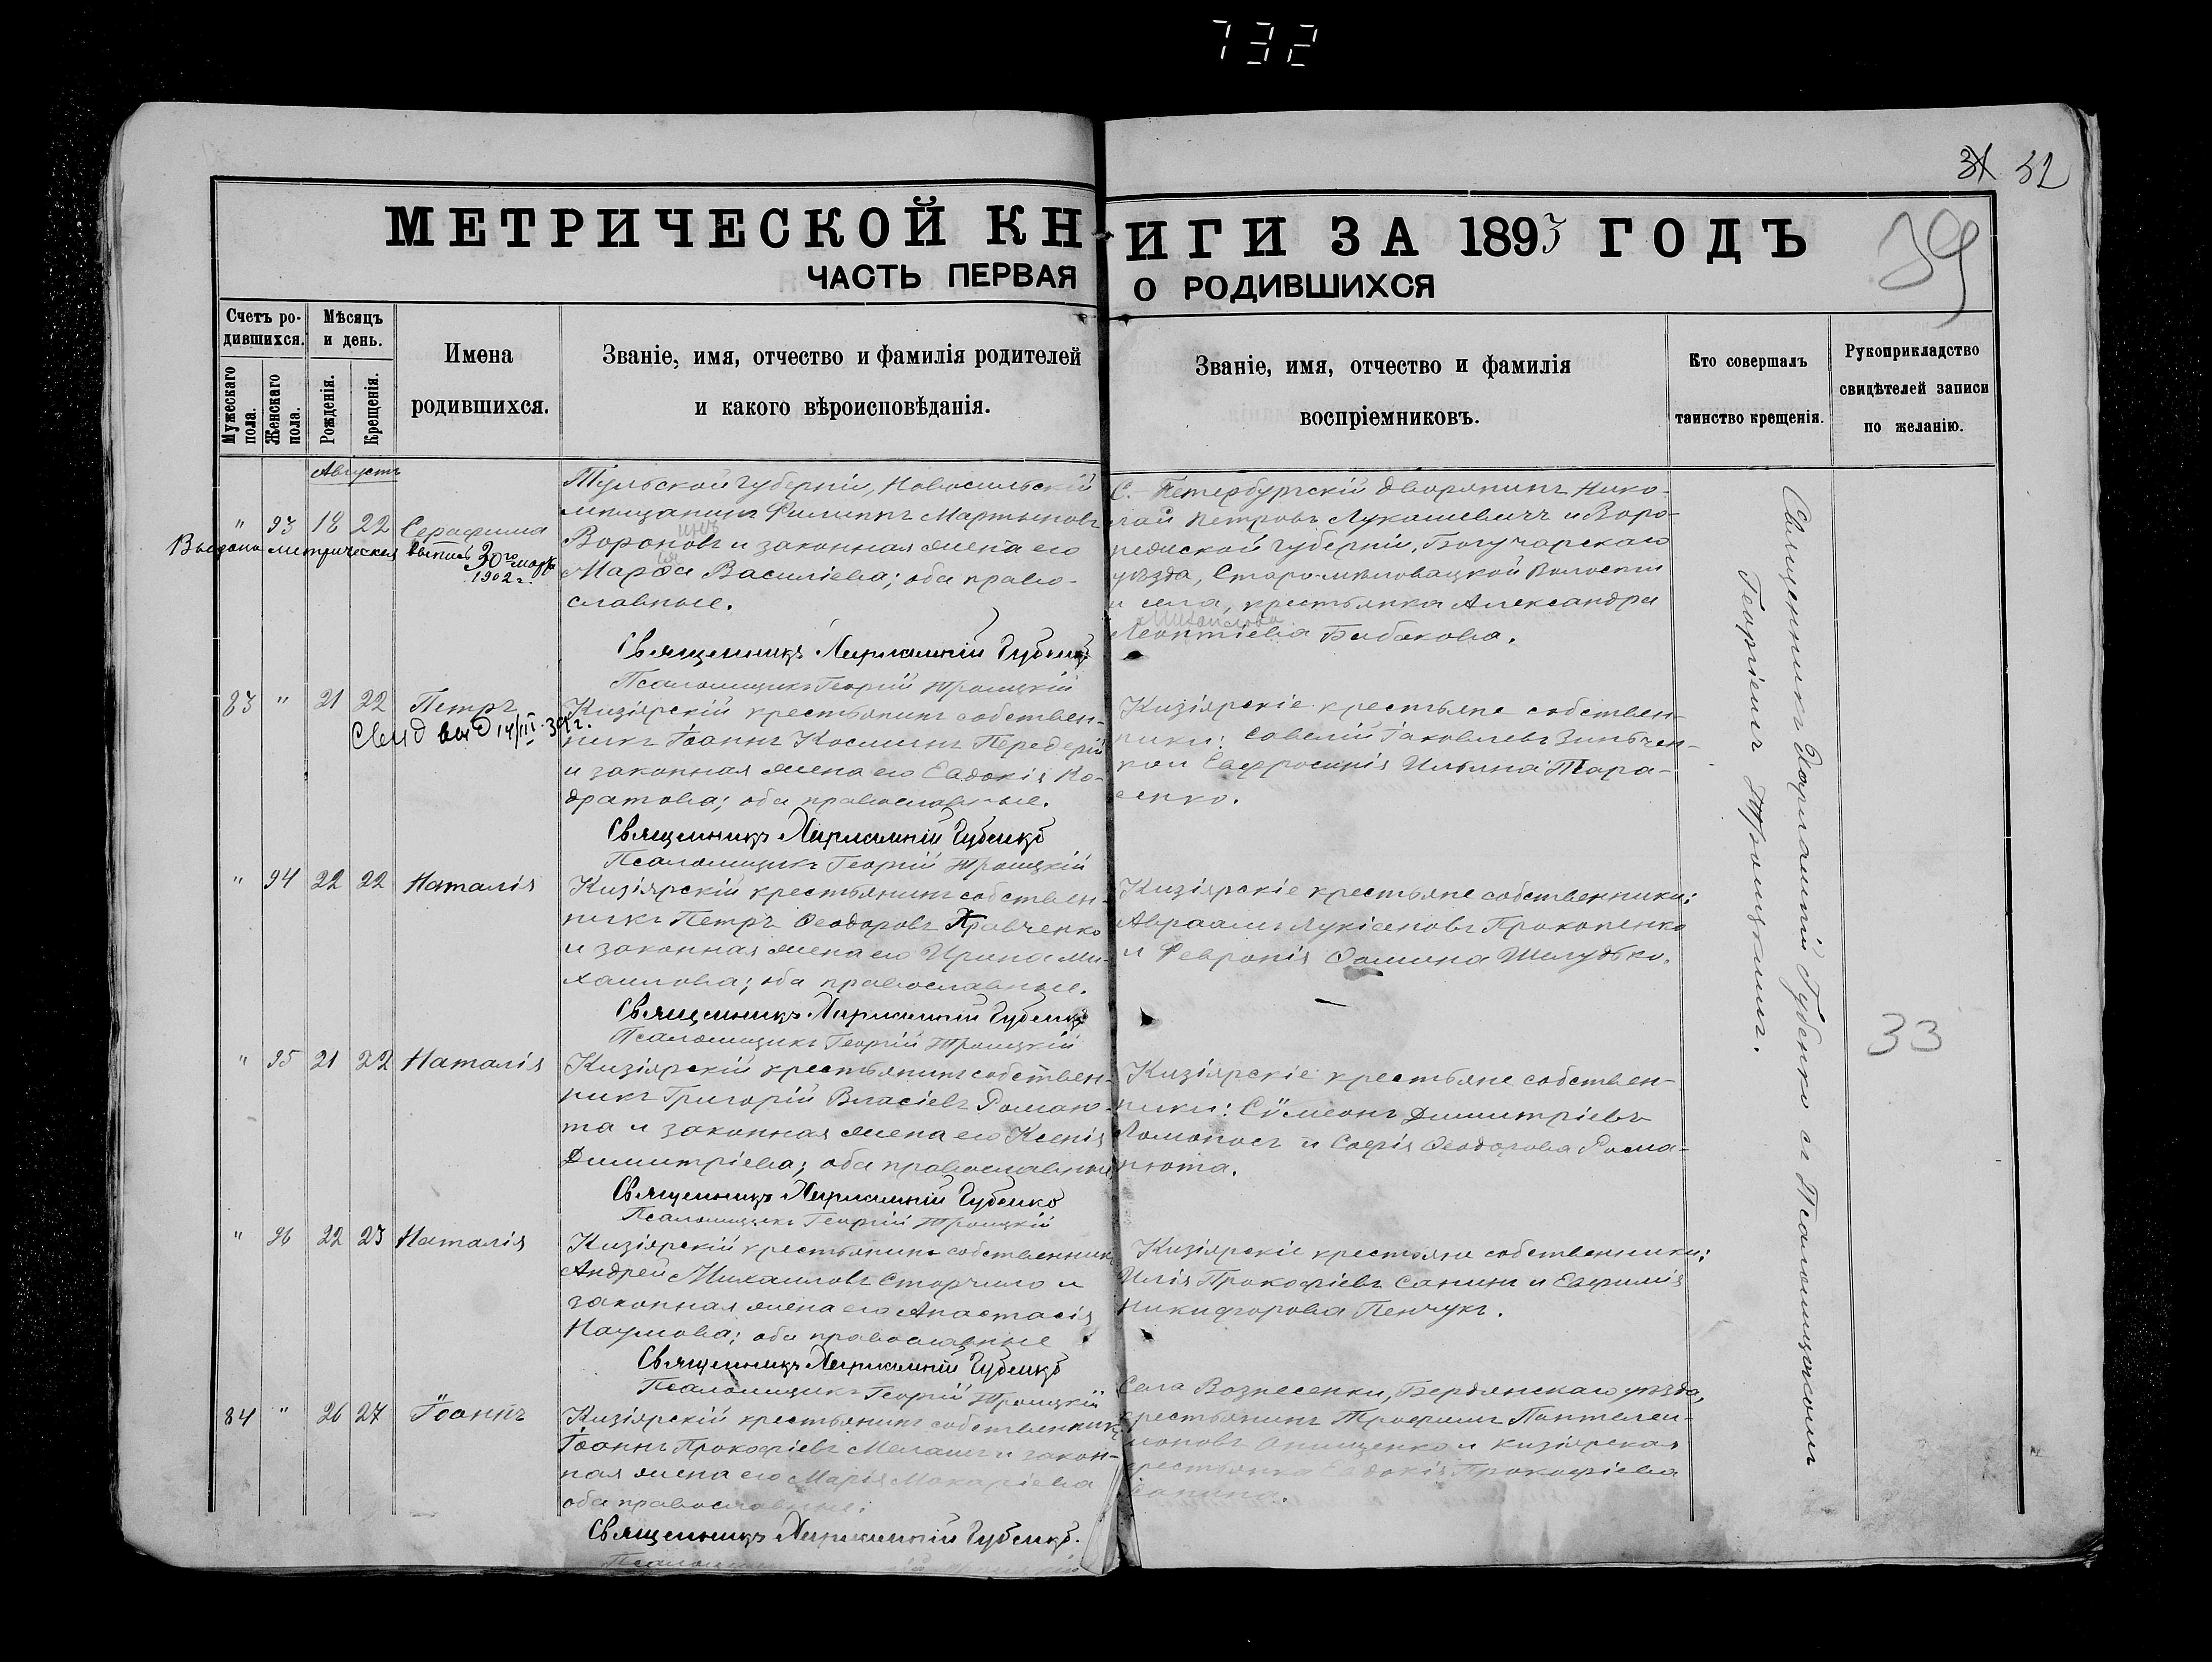 732
31 32
39
МЕТРИЧЕСКОЙ КНИГИ ЗА 1893 ГОДЪ
ЧАСТЬ ПЕРВАЯ О РОДИВШИХСЯ
Счетъ ро-
дившихся.
Мужескаго пола.
Женскаго пола.
Мѣсяцъ
и день.
Рожденія.
Крещенія.
Имена
родившихся.
Званіе, имя, отчество и фамилія родителей
и какого вѣроисповѣданія.
Званіе, имя, отчество и фамилія
воспріемниковъ.
Кто совершалъ
таинство крещенія.
Рукоприкладство
свидѣтелей записи
по желанію.
Августъ
" 93 18 22 Серафима
Выдана метрическая выпись 30го марта
1902 г.
Тульской Губерніи, Новосильскій
мѣщанинъ Филиппъ Мартыновъ
Вороновъ и законная жена его
Марѳа Василіева; оба право-
славные.
Священникъ Харлампій Губенко
Псаломщикъ Георгій Троицкій
С.-Петербургскій дворянинъ Нико-
лай Петровъ Лукашевичъ и Воро-
нежской Губерніи, Богучарскаго
уѣзда, Старо-мѣловацкой Волости
и села, крестьянка Александра
Михайлова
Леонтіева Бабакова.
83 " 21 22 Петръ
Свид выд 14/III
Кизіярскій крестьянинъ собствен-
никъ Іоаннъ Косминъ Передерій
и законная жена его Евдокія Ко-
дратова; оба православные.
Священникъ Харлампій Губенко
Псаломщикъ Георгій Троицкій
Кизіярскіе крестьяне собствен-
ники: Савелій Іаковлевъ Зинчен-
ко и Евфросинія Ильина Тара-
сенко.
" 94 22 22 Наталія
Кизіярскій крестьянинъ собствен-
никъ Петръ Ѳеодоровъ Кравченко
и законная жена его Ирина Ми-
хаилова; оба православные.
Священникъ Харлампій Губенко
Псаломщикъ Георгій Троицкій
Кизіярскіе крестьяне собственники:
Авраамъ Лукіановъ Прокопенко
и Февронія Ѳомина Шелудько.
" 95 21 22 Наталія
Кизіярскій крестьянинъ собствен-
никъ Григорій Власіевъ Романю-
та и законная жена его Ксенія
Димитріева; оба православные.
Священникъ Харлампій Губенко
Псаломщикъ Георгій Троицкій
Кизіярскіе крестьяне собствен-
ники: Сѵмеонъ Димитріевъ
Ломоносъ и Софія Ѳеодорова Рома-
нюта.
" 96 22 23 Наталія
Кизіярскій крестьянинъ собственникъ
Андрей Михаиловъ Сторчило и
законная жена его Анастасія
Наумова; оба православные
Священникъ Харлампій Губенко
Псаломщикъ Георгій Троицкій
Кизіярскіе крестьяне собственники:
Илія Прокофіевъ Санинъ и Евфимія
Никифорова Пенчукъ.
84 " 26 27 Іоаннъ
Кизіярскій крестьянинъ собственникъ
Іоаннъ Прокофіевъ Мелашъ и закон-
ная жена его Марія Макаріева
оба православные.
Священникъ Харлампій Губенко.
Села Вознесенки, Бердянскаго уѣзда,
крестьянинъ Трофимъ Пантелеи-
моновъ Онищенко и Кизіярская
крестьянка Евдокія Прокофіева
Санина.
Священникъ Харлампій Губенко съ Псаломщикомъ
Георгіемъ Троицкимъ.
33